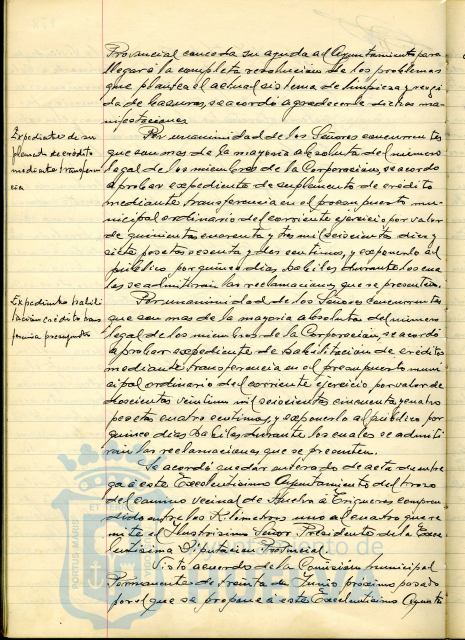 Provincial conceda su ayuda al Ayuntamiento para
llegar á la completa resolución de los problemas
que plantea el actual sistema de limpieza y recogi
da de basuras, se acordó agradecerle dichas ma
nifestaciones
Expediente de su
plemento de crédito
mediante transferen
cia
Por unanimidad de los Señores concurrentes
que son mas de la mayoria absoluta del número
legal de los miembros de la Corporación, se acordó
aprobar expediente de suplemento de crédito
mediante transferencia en el presupuesto mu
nicipal ordinario del corriente ejercicio por valor
de quinientas cuarenta y tres mil seiscientas diez y
siete pesetas sesenta y dos centimos, y exponerlo al
público por quince dias habiles durante los cua
les se admitiran las reclamaciones que se presenten.
Expediente habili
tación crédito trans
ferencia presupuesto
Por unanimidad de los Señores concurrentes
que son mas de la mayoria absoluta del número
legal de los miembros de la Corporación, se acordó
aprobar expediente de habilitación de crédito
mediante transferencia en el presupuesto muni
cipal ordinario del corriente ejercicio por valor de
doscientas veintiun mil seiscientas cincuenta y cuatro
pesetas cuatro centimos, y exponerlo al público por
quince dias habiles durante los cuales se admiti
ran las reclamaciones que se presenten.
Se acordó quedar enterado de acta de entre
ga á este Excelentisimo Ayuntamiento del trozo
del camino vecinal de Huelva á Trigueros compren
dido entre los Kilometros uno al cuatro que re
mite el Ilustrisimo Señor Presidente de la Exce
lentisima Diputacion Provincial.
Visto acuerdo de la Comisión municipal
Permanente de treinta de Junio próximo pasado
por el que se propone á este Excelentisimo Ayunta
PORTUS MARIS
ET TERRÆ
Ayuntamiento de
HUELVA